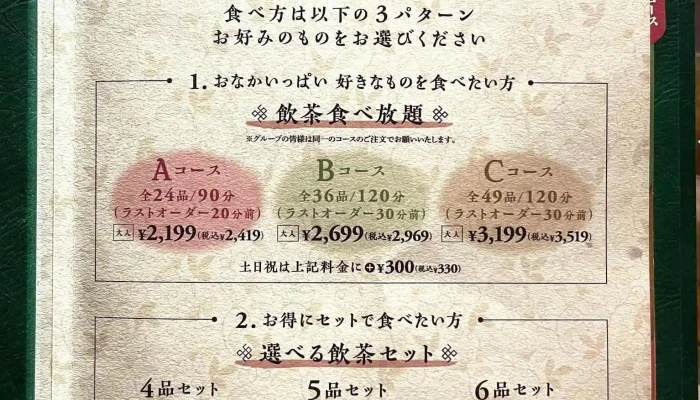 食べ方は以下の3パターン
お好みのものをお選びください
1. おなかいっぱい 好きなものを食べたい方
飲茶食べ放題
※グループの皆様は同一のコースのご注文でお願いいたします。
Aコース
全24品/90分
(ラストオーダー20分前)
大人 ¥2,199(税込¥2,419)
Bコース
全36品/120分
(ラストオーダー30分前)
大人 ¥2,699(税込¥2,969)
Cコース
全49品/120分
(ラストオーダー30分前)
大人 ¥3,199(税込¥3,519)
土日祝は上記料金に+¥300(税込¥330)
2. お得にセットで食べたい方
選べる飲茶セット
4品セット 5品セット 6品セット